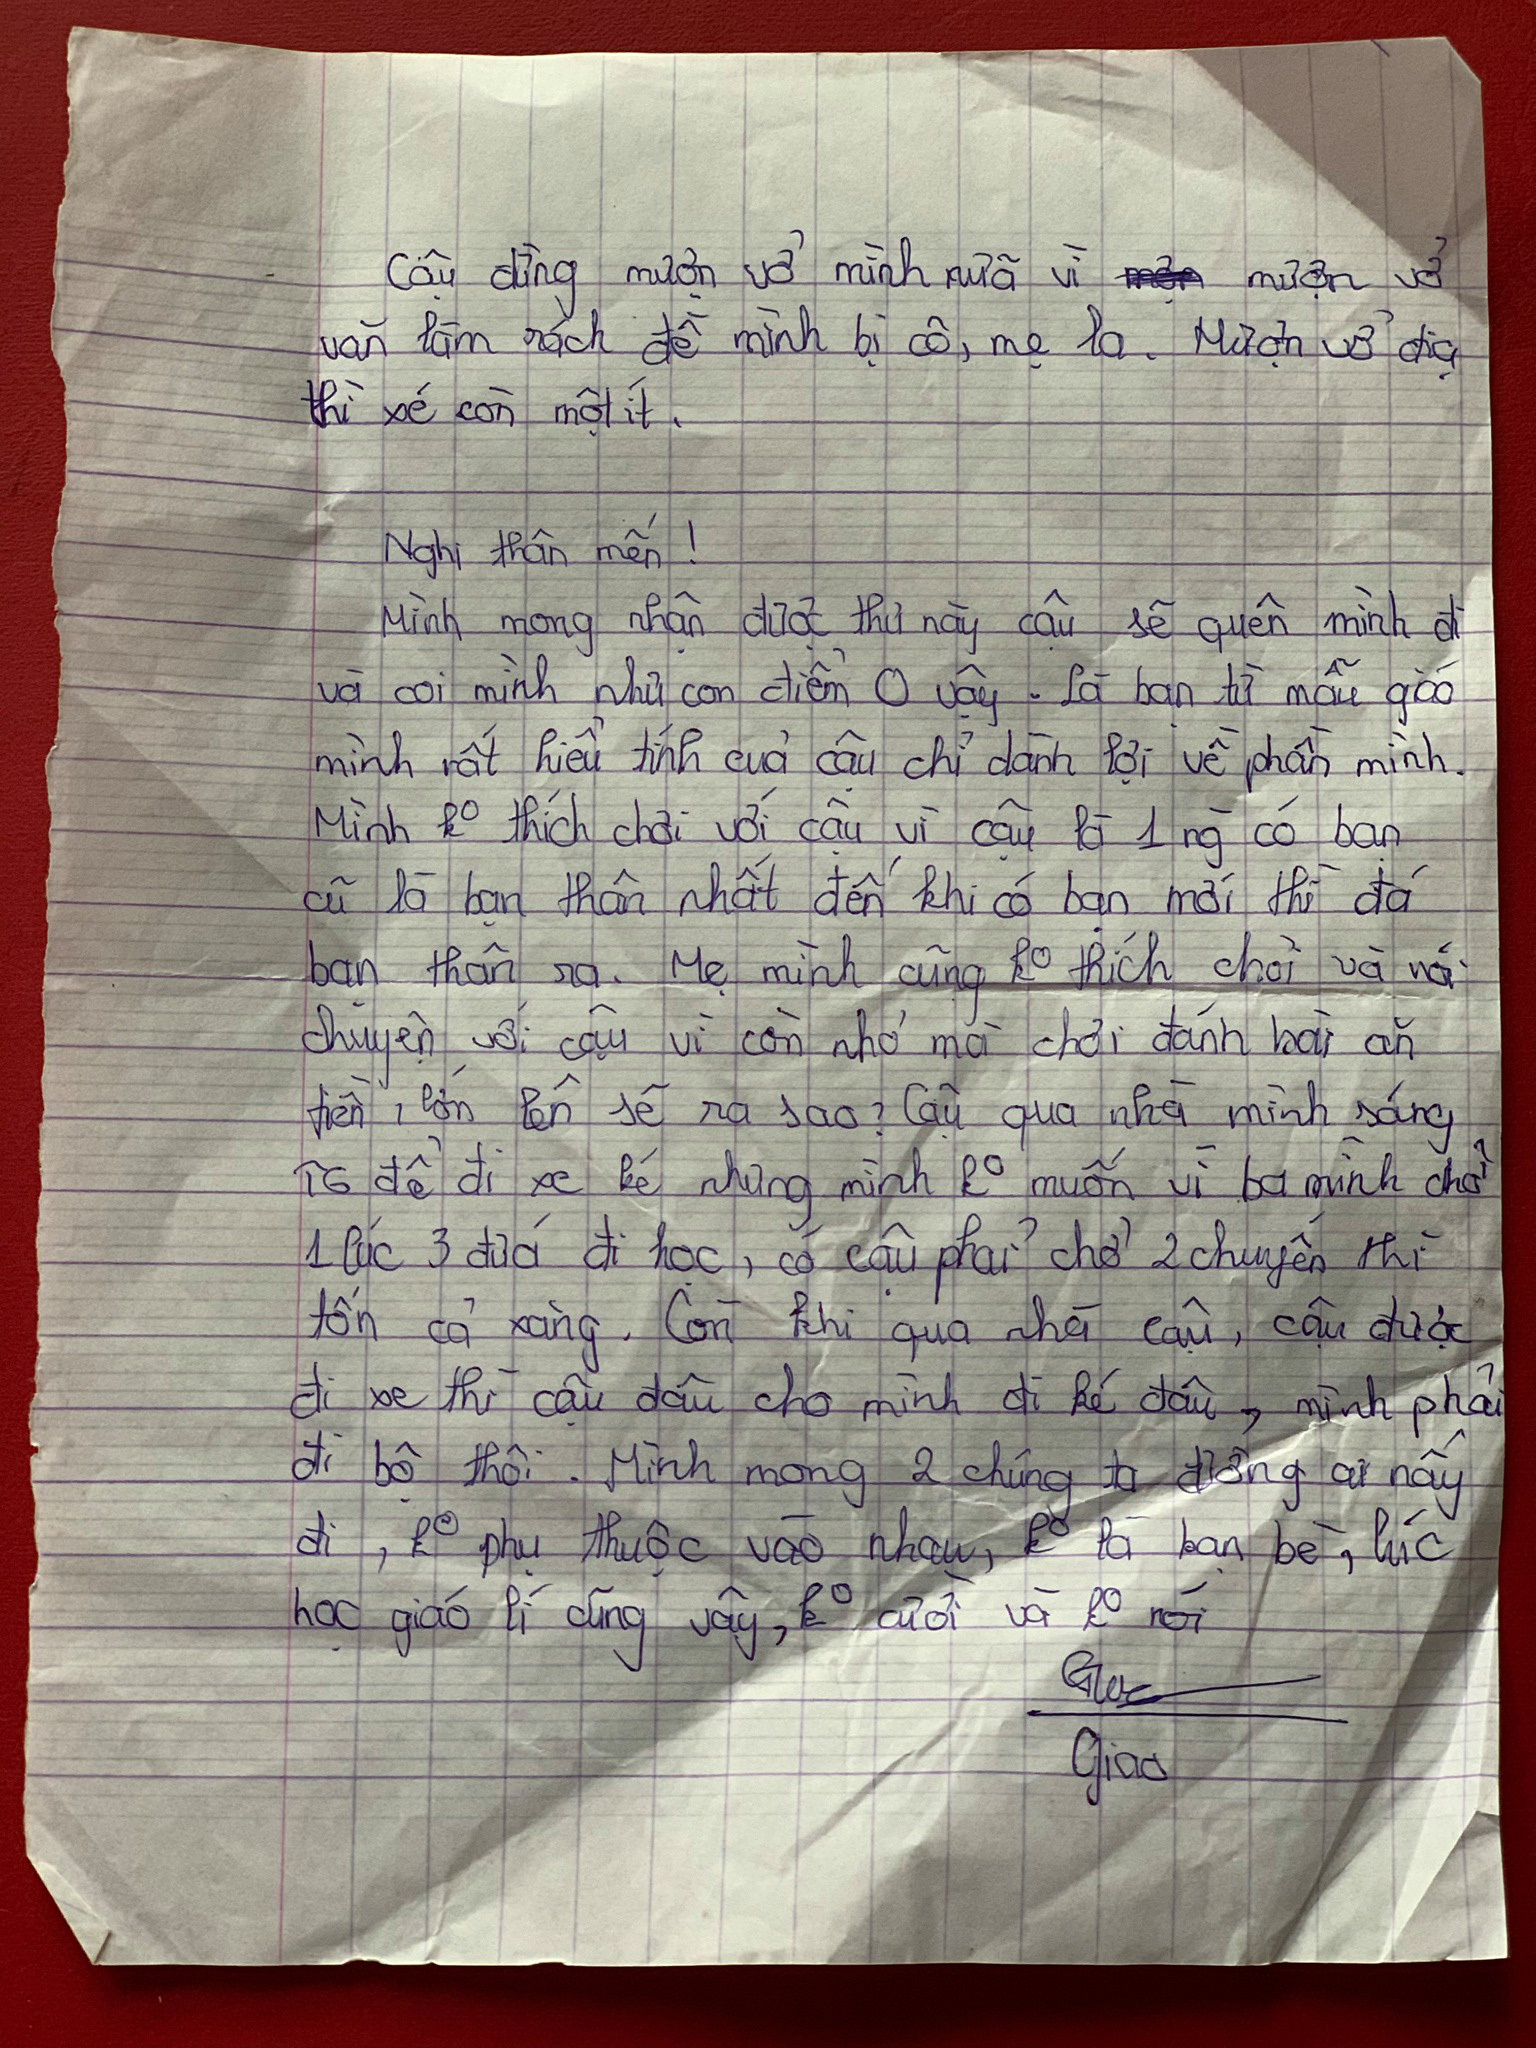 Cậu đừng mượn vở mình nữa vì mượn vở
văn làm rách để mình bị cô, mẹ la. Mượn vở địa
thì xé còn một ít.
Nghi thân mến!
Mình mong nhận được thư này cậu sẽ quên mình đi
và coi mình như con điểm 0 vậy. Là bạn từ mẫu giáo
mình rất hiểu tính cuả cậu chỉ dành lợi về phần mình.
Mình ko thích chơi với cậu vì cậu là 1 ng̃ có bạn
cũ là bạn thân nhất đến khi có bạn mới thì đá
bạn thân ra. Mẹ mình cũng ko thích chơi và nói
chuyện với cậu vì còn nhỏ mà chơi đánh bài ăn
tiền, lớn lên sẽ ra sao? Cậu qua nhà mình sáng
T6 để đi xe ké nhưng mình ko muốn vì ba mình chở
1 lúc 3 đứa đi học, có cậu phải chở 2 chuyến thì
tốn cả xăng. Còn khi qua nhà cậu, cậu được
đi xe thì cậu đâu cho mình đi ké đâu, mình phải
đi bộ thôi. Mình mong 2 chúng ta đường ai nấy
đi, ko phụ thuộc vào nhau, ko là bạn bè, lúc
học giáo lí cũng vậy, ko cười và ko nói
Giao